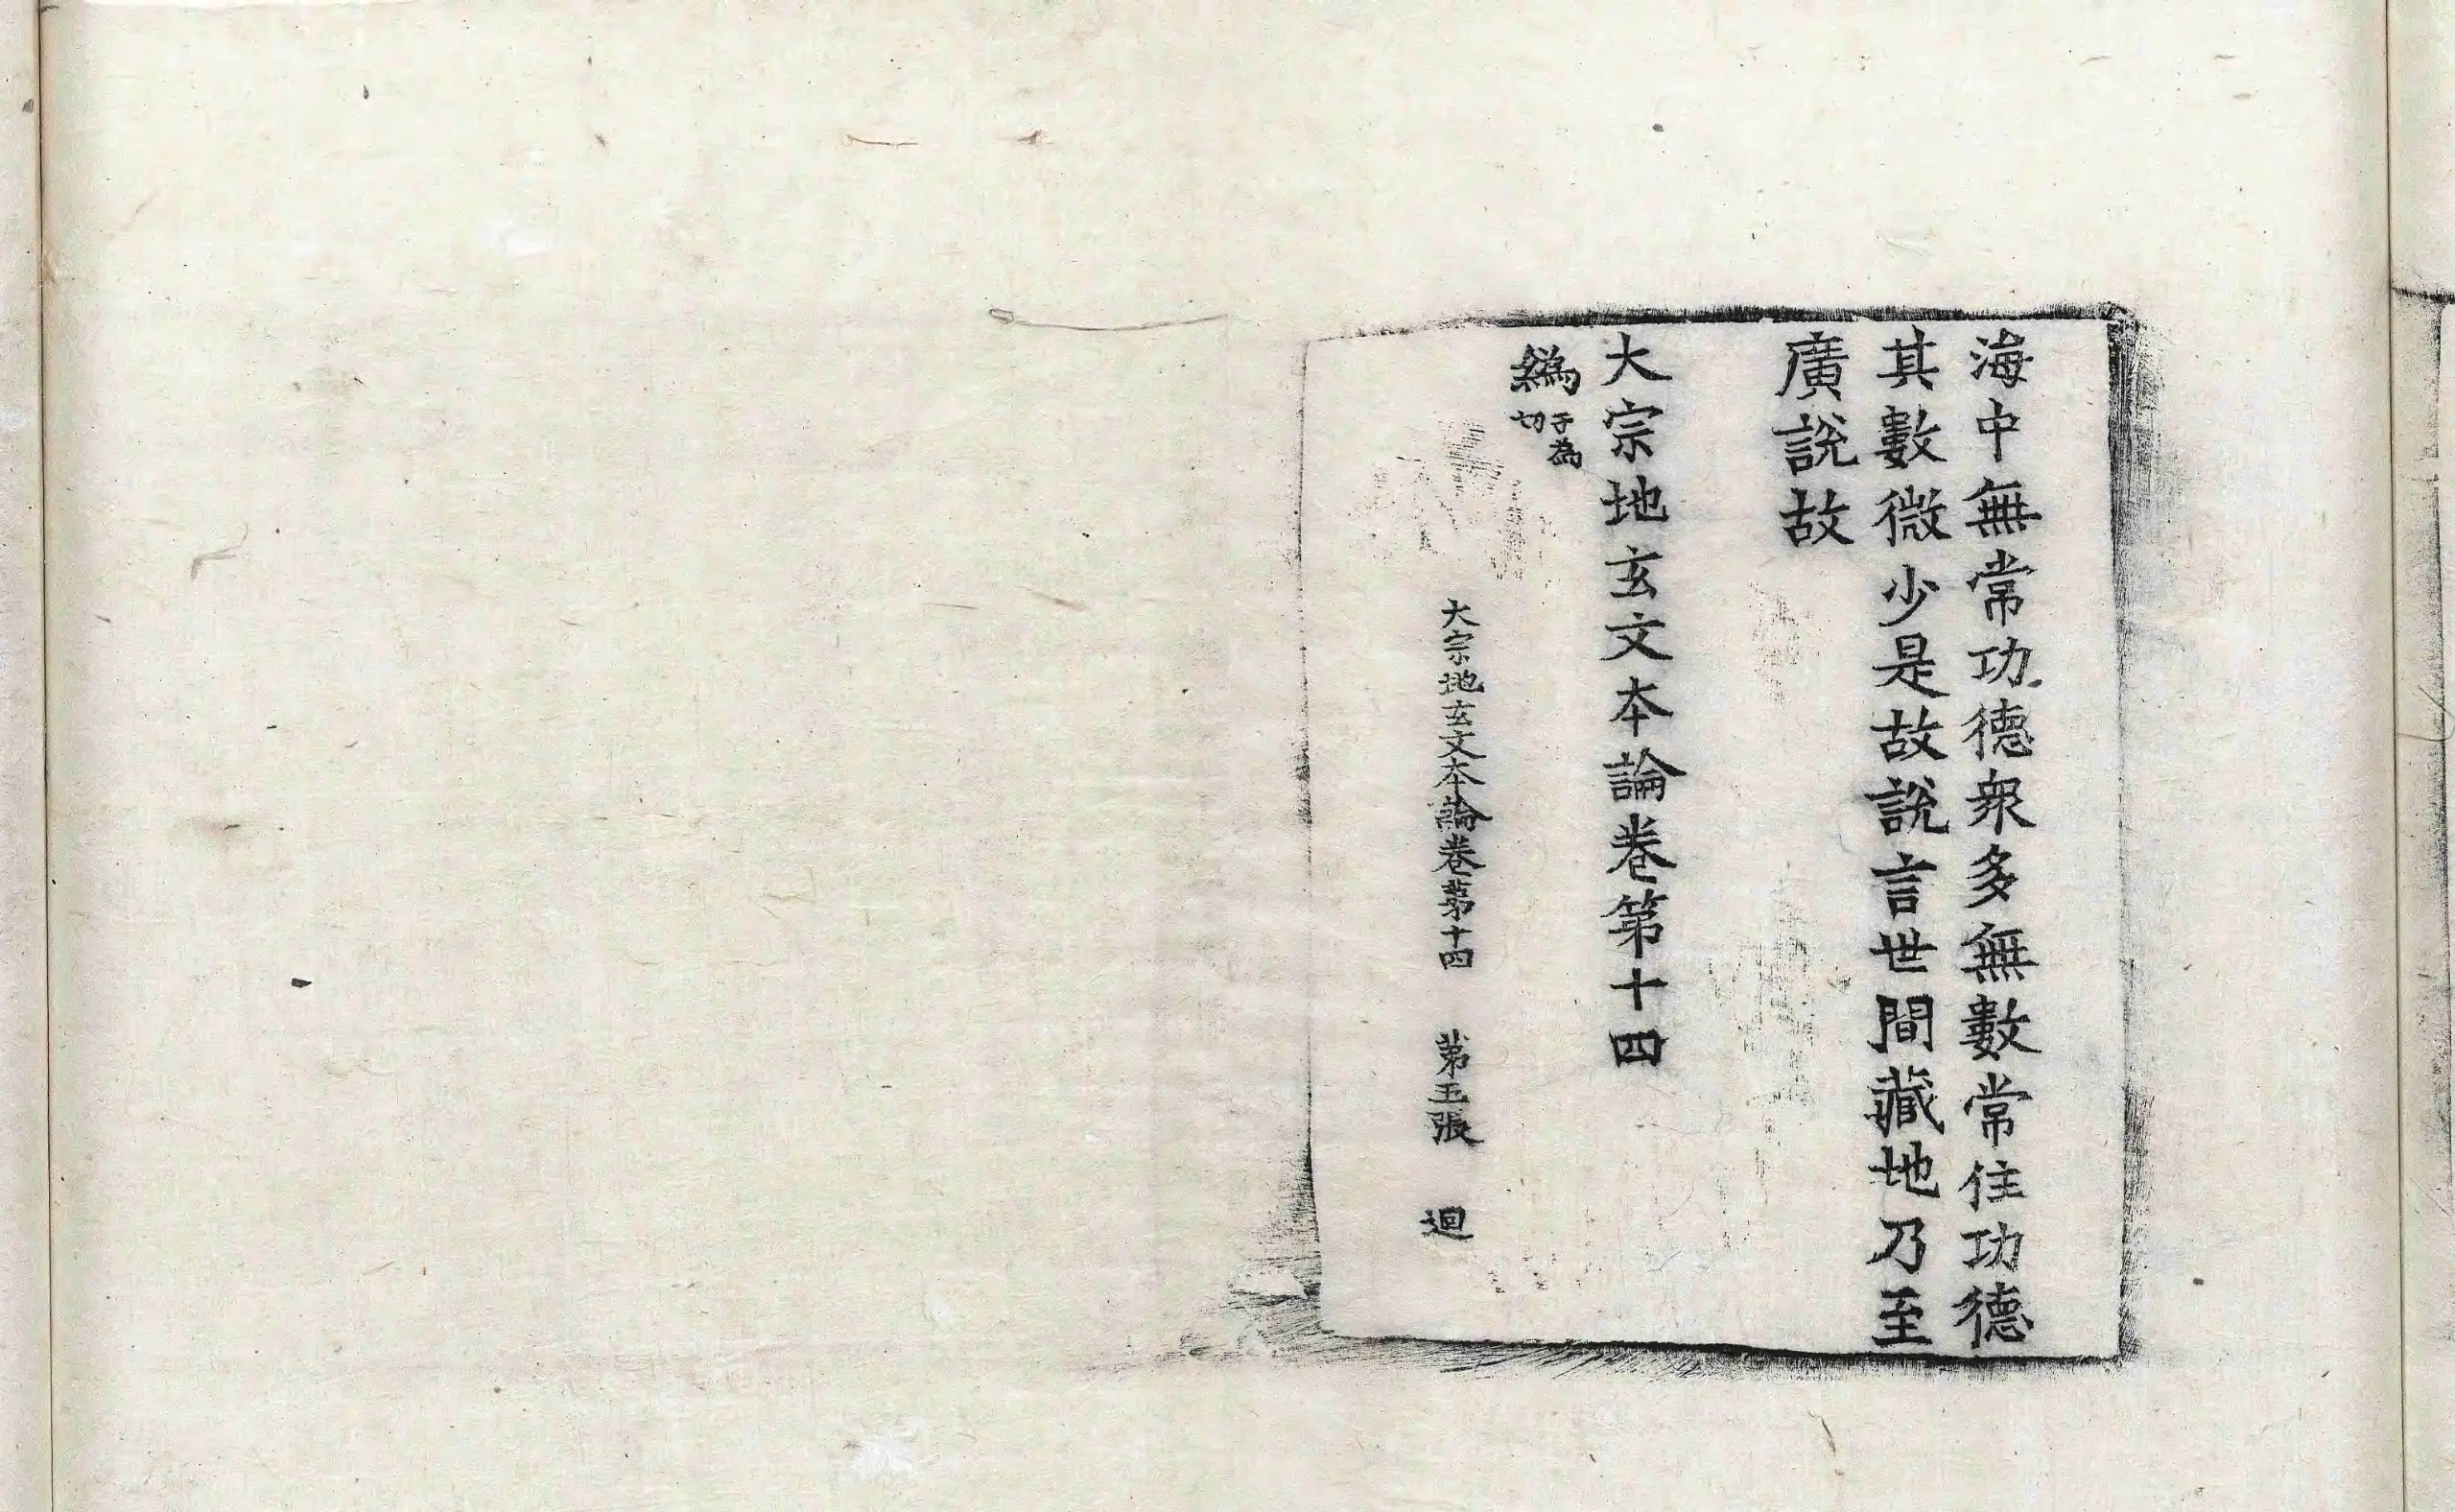 海中無常功德衆多無數常住功德
其數微少是故說言世間藏地乃至
廣說故
大宗地玄文本論卷第十四
䌼 子為切
大宗地玄文本論卷第十四 第五張 迴